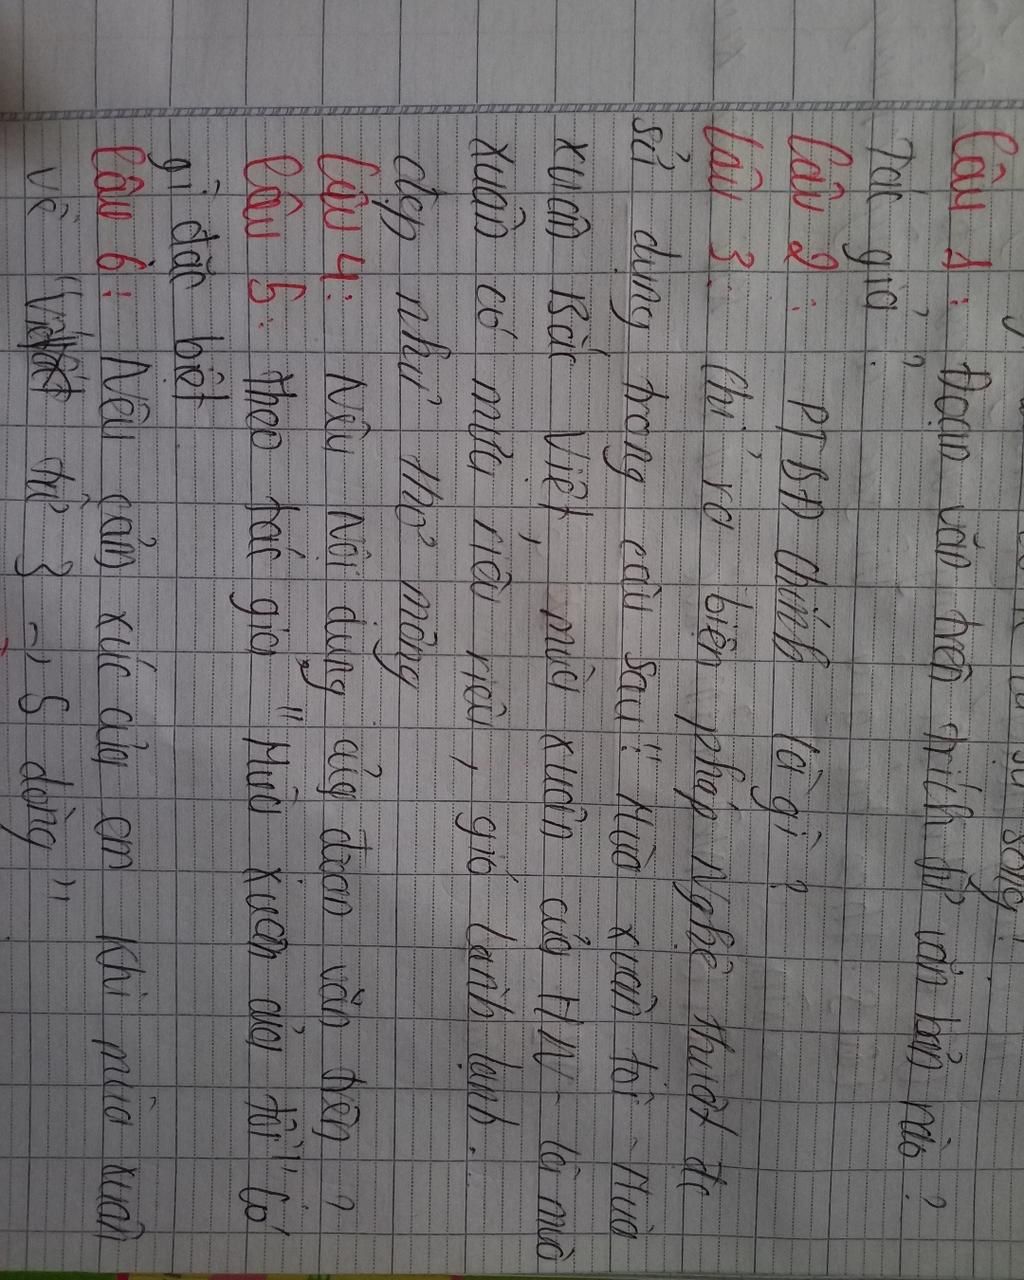 sống
Câu 1: Đoạn văn trên trích từ văn bản nào?
Tác giả?
Câu 2: PTBĐ chính là gì?
Câu 3: Chỉ ra biện pháp Nghệ thuật đc
sử dụng trong câu sau: "Mùa xuân tôi - Mùa
xuân Bắc Việt, mùa xuân của HN - là mùa
xuân có mưa riêu riêu, gió lành lạnh...
đẹp như thơ mộng
Câu 4: Nêu Nội dung của đoạn văn trên?
Câu 5: Theo tác giả "Mùa xuân của tôi" Có
gì đặc biệt
Câu 6: Nêu cảm xúc của em Khi mùa xuân
về "Viết từ 3 -, 5 dòng"